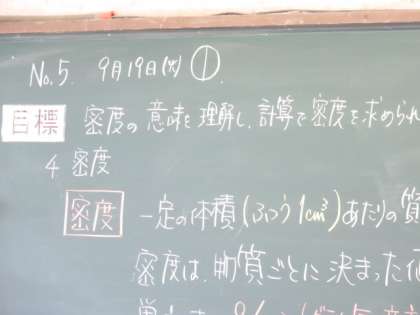 No.5. 9月19日(火) ①.
目標 密度の意味を理解し、計算で密度を求められ
4 密度
密度 一定の体積(ふつう1cm³)あたりの質
密度は、物質ごとに決まった